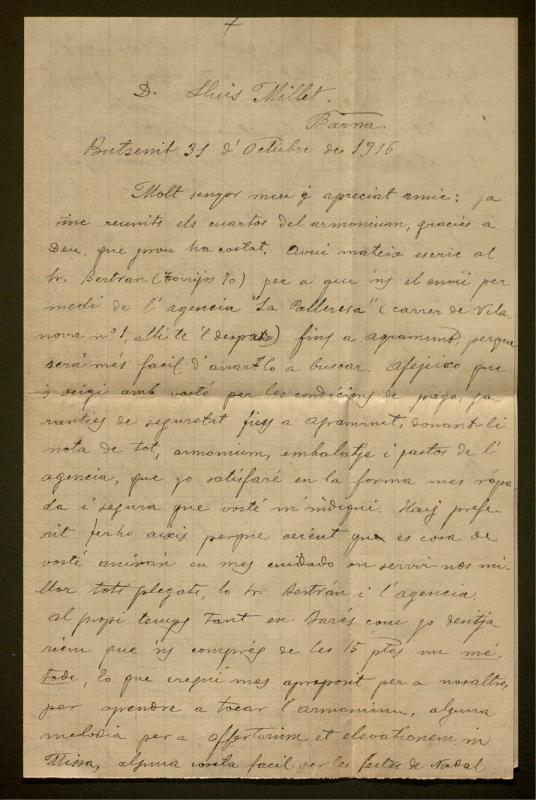 +
D. Lluis Millet.
Barna.
Butsenit 31 d'Octubre de 1916.
Molt senyor meu y apreciat amic: ja
tinc reunits els cuartos del armonium, gracies a
Deu, que prou ha costat. Avui mateix escric al
Sr. Bertran (Torrijos 70) per a que 'ns el envii per
medi de l'agencia "La Palleresa" (carrer de Vila
nova nº 1, alli te 'l despaig) fins a Agramunt, perque
sera més facil d'anarlo a buscar. Afegeixo que
s veigi amb vosté per les condicions de pago, ga-
ranties de seguretat fins a Agramunt, donant-li
nota de tot, armonium, embalatje i gastos de l'
agencia, que jo satisfaré en la forma mes rápi
da i segura que vosté m'indiqui. Haig prefe-
rit ferho aixis perque sabent que es cosa de
vosté aniran en mes cuidado en servir-nos mi-
llor tots plegats, lo Sr. Bertrán i l'agencia.
Al propi temps tant en Barés com jo desitja
riem que 'ns comprés de les 15 ptes un mé-
tode, lo que cregui mes aproposit per a nosaltres
per apendre a tocar l'armonium, alguna
melodia per a offertorium et elevationem in
Missa, alguna coseta facil per les festes de Nadal